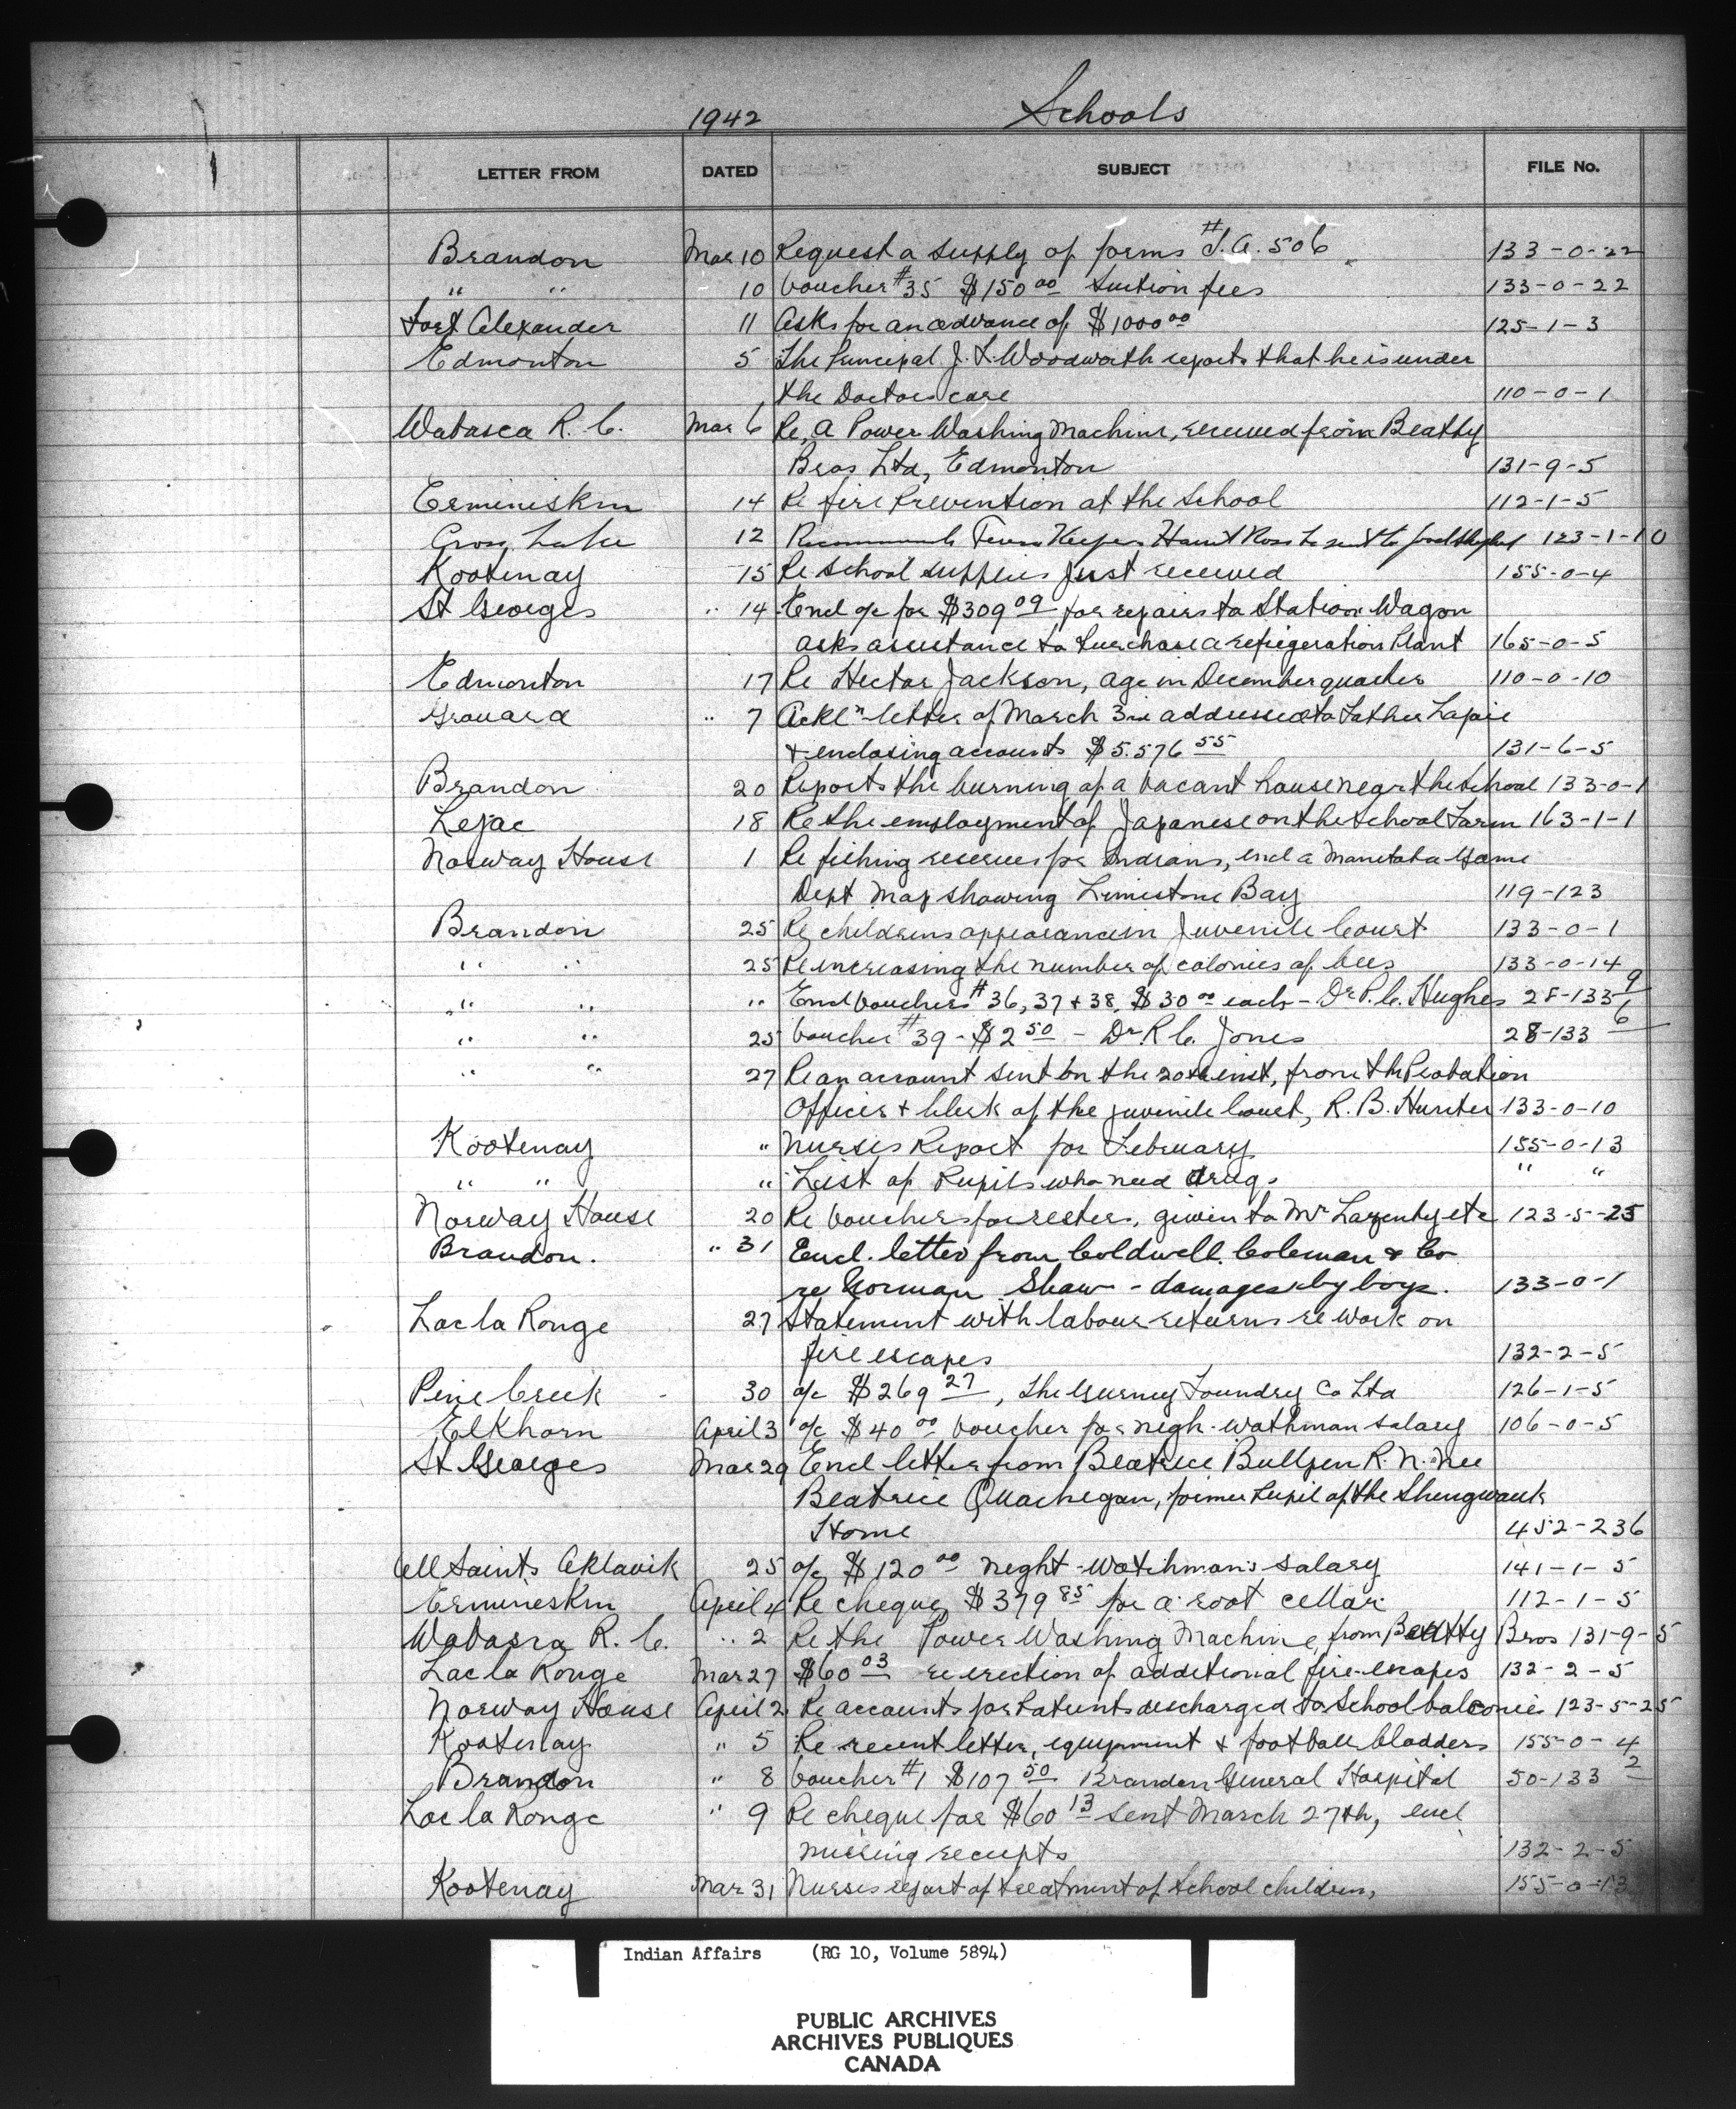 1942 Schools
LETTER FROM DATED SUBJECT FILE No.
Brandon Mar 10 Request a supply of forms # I.A. 506 133-0-22
" " 10 Voucher #35 $150 00 Tuition fees 133-0-22
Fort Alexander 11 Asks for an advance of $1000 00 125-1-3
Edmonton 5 The Principal J. F. Woodsworth reports that he is under
the Doctors care 110-0-1
Wabasca R. C. Mar 6 Re, a Power Washing Machine, received from Beatty
Bros Ltd, Edmonton 131-9-5
Ermineskin 14 Re fire Prevention at the School 112-1-5
Cross Lake 12 Recommends 123-1-10
Kootenay 15 Re school supplies just received 155-0-4
St Georges " 14 Encl a/c for $309 09 for repairs to Station Wagon
asks assistance to Purchase a refrigeration Plant 165-0-5
Edmonton 17 Re Hector Jackson, age in December quarter 110-0-10
Grouard " 7 Ackl'n letter of March 3rd addressed to Father
& enclosing accounts $5.576 55 131-6-5
Brandon 20 Reports the burning of a vacant house near the School 133-0-1
Lejac 18 Re the employment of Japanese on the School Farm 163-1-1
Norway House 1 Re fishing reserves for Indians, encl a Manitoba Game
Dept Map showing Limestone Bay 119-123
Brandon 25 Re childrens appearance in Juvenile Court 133-0-1
" " 25 Re increasing the number of colonies of bees 133-0-14
" " " Encl Vouchers #36, 37 & 38, $30 00 each - Dr P. C. Hughes 28-133 9
" " 25 Voucher #39 - $2 50 - Dr R. C. Jones 28-133 6
" " 27 Re an account sent on the 20th inst, from the Probation
Officer & Clerk of the juvenile Court, R. B. Hunter 133-0-10
Kootenay " Nurses Report for February 155-0-13
" " " List of Pupils who need drugs " "
Norway House 20 Re Vouchers for, given to Mr etc 123-5-25
Brandon. " 31 Encl. letter from Coldwell Coleman & Co
re Norman Shaw - damages by boys. 133-0-1
Lac la Ronge 27 Statement with labour returns re work on
fire escapes 132-2-5
Pine Creek - 30 a/c $269 27, The Gurney Foundry Co Ltd 126-1-5
Elkhorn April 3 a/c $40 00 Voucher for nigh-wathman salary 106-0-5
St Georges Mar 29 Encl letter from Beatrice Bullpen R. N. nee
Beatrice Quachegan, former Pupil of the Shingwauk
Home 452-236
All Saints Aklavik 25 a/c $120 00 night-watchman's salary 141-1-5
Ermineskin April 4 Re cheque $379 85 for a root cellar 112-1-5
Wabasca R. C. " 2 Re the Power Washing Machine, from Beatty Bros 131-9-5
Lac la Ronge Mar 27 $60 03 re erection of additional fire-escapes 132-2-5
Norway House April 2 Re accounts for Patients discharged to School balconies 123-5-25
Kootenay " 5 Re recent letter, equipment & football bladders 155-0-4
Brandon " 8 Voucher #1 $107 50 Brandon General Hospital 50-133 2
Lac la Ronge " 9 Re cheque for $60 13 sent March 27th, encl
missing receipts 132-2-5
Kootenay Mar 31 Nurses report of treatment of School children, 155-0-13
Indian Affairs (RG 10, Volume 5894)
PUBLIC ARCHIVES
ARCHIVES PUBLIQUES
CANADA